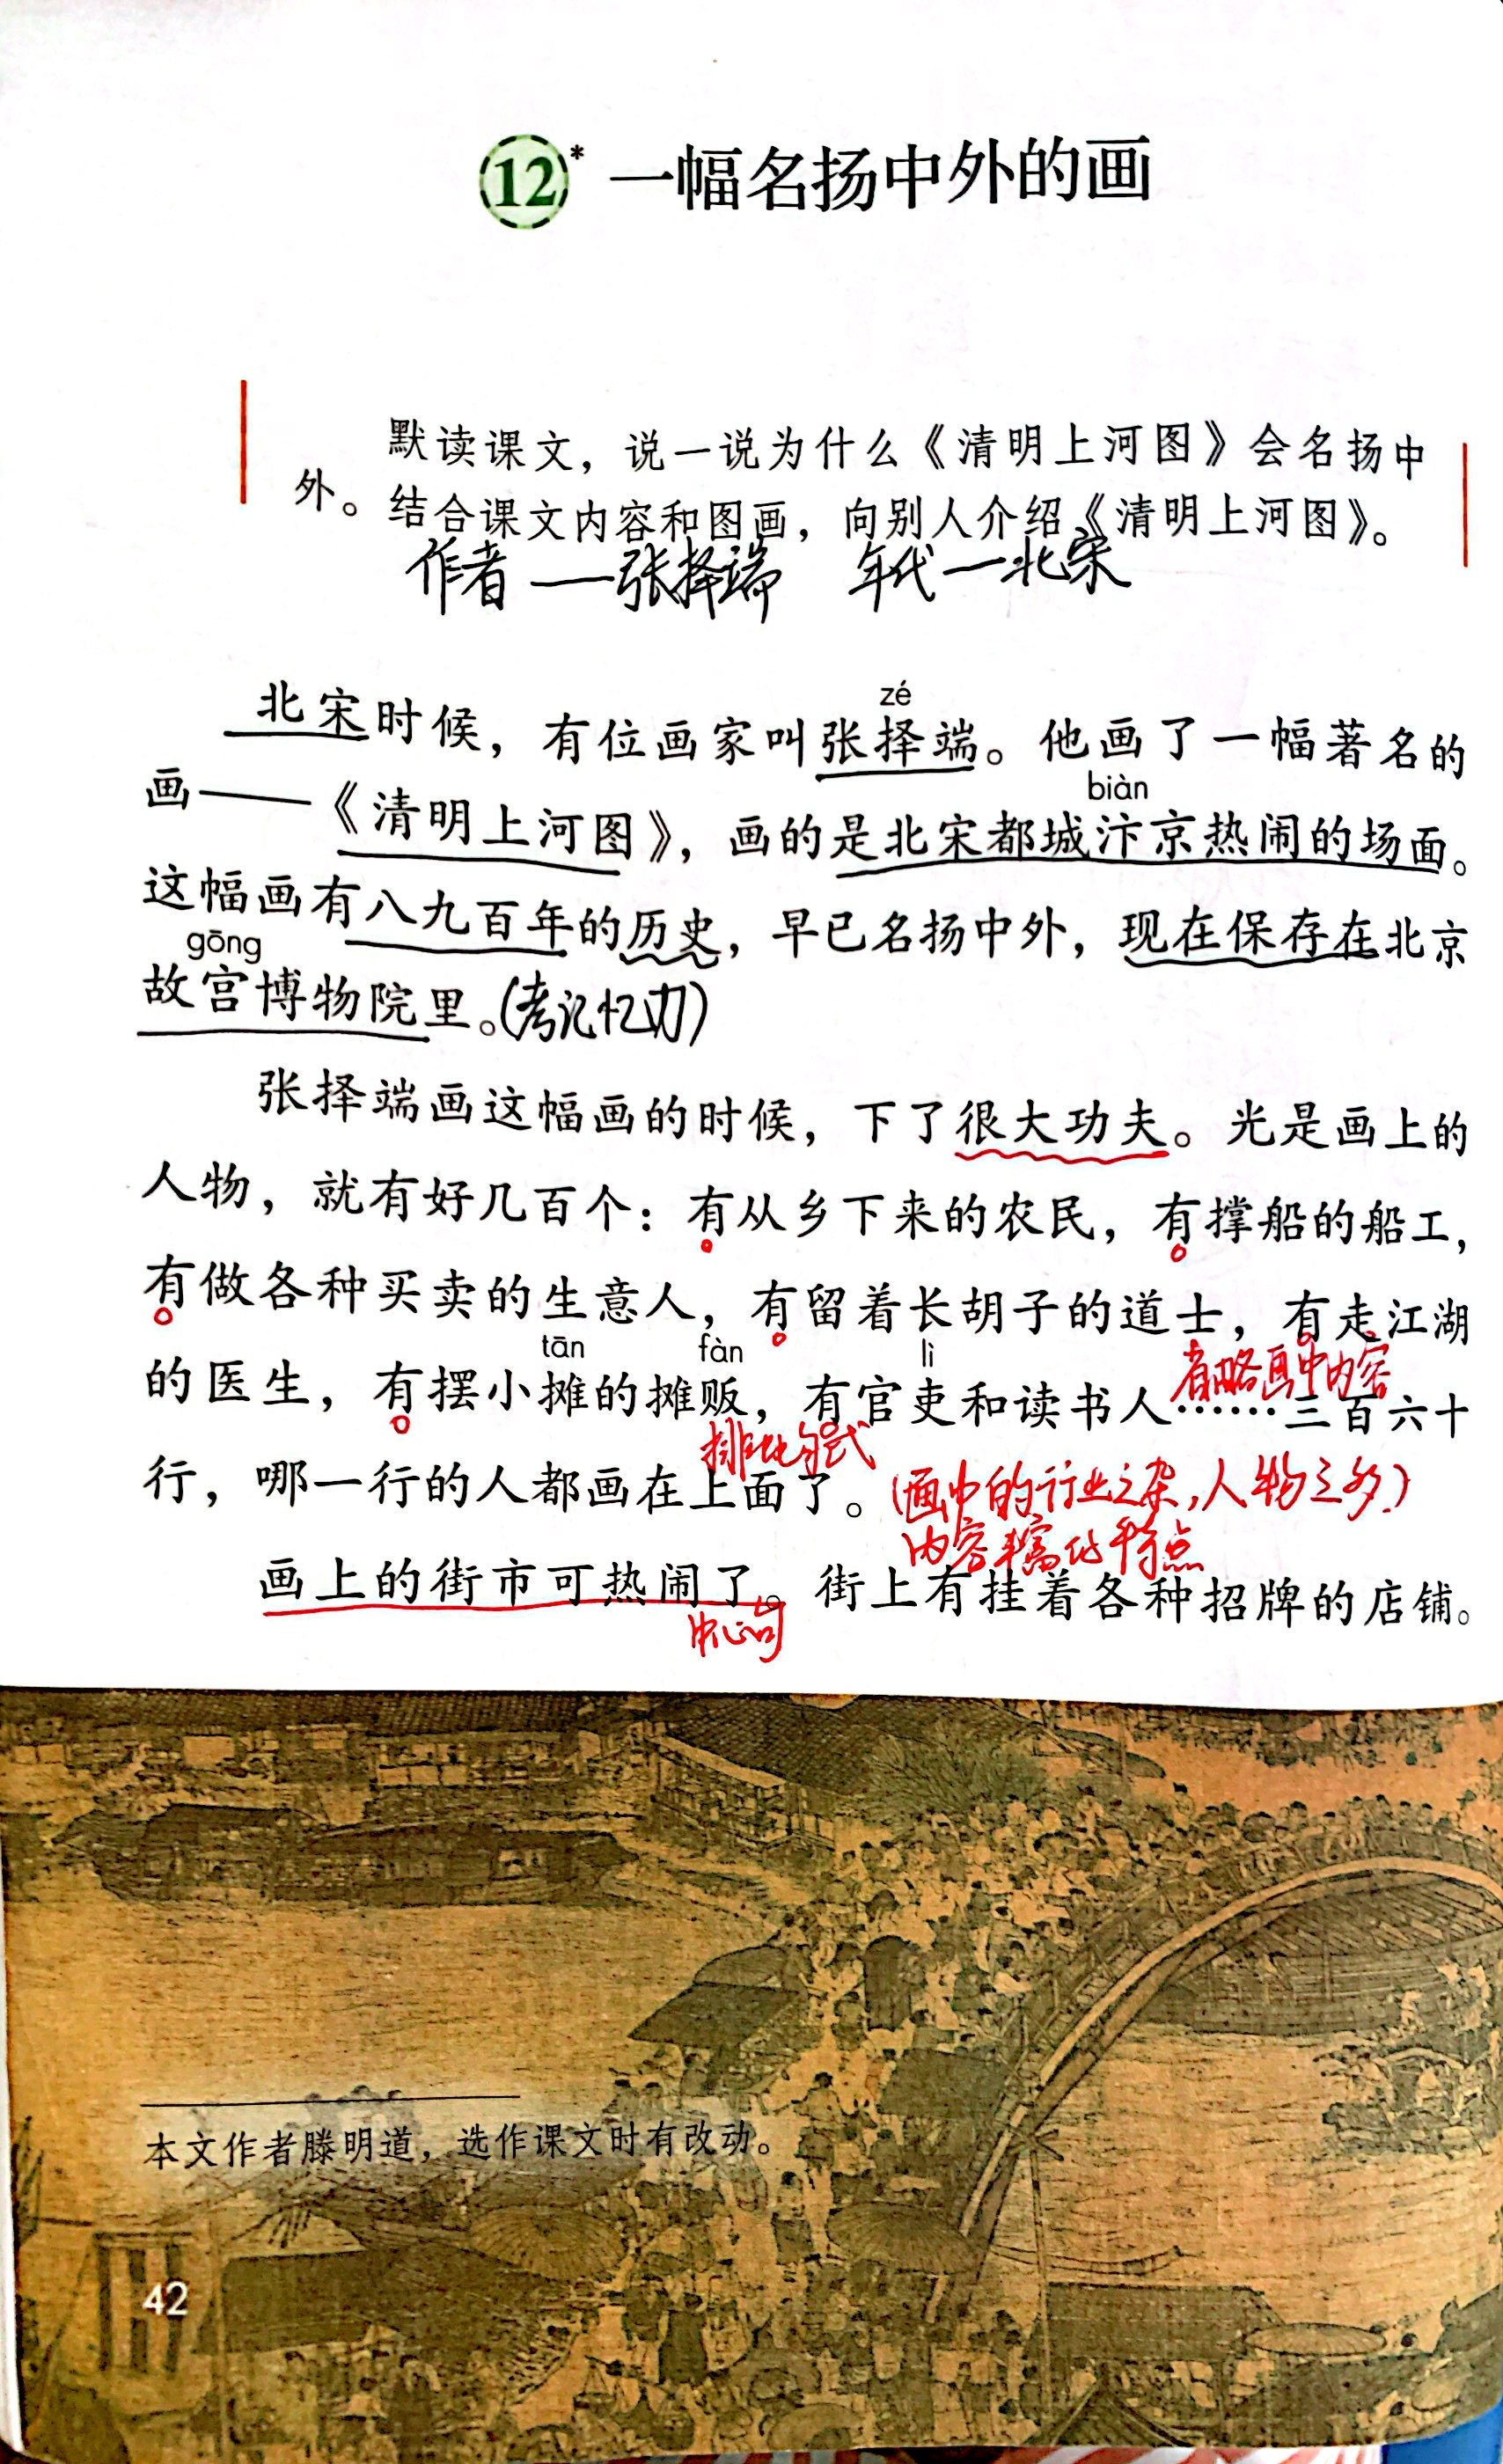 12* 一幅名扬中外的画
默读课文，说一说为什么《清明上河图》会名扬中
外。结合课文内容和图画，向别人介绍《清明上河图》。
作者——张择端 年代—北宋
zé
北宋时候，有位画家叫张择端。他画了一幅著名的
biàn
画——《清明上河图》，画的是北宋都城汴京热闹的场面。
这幅画有八九百年的历史，早已名扬中外，现在保存在北京
gōng
故宫博物院里。(考记忆力)
张择端画这幅画的时候，下了很大功夫。光是画上的
人物，就有好几百个：有从乡下来的农民，有撑船的船工，
有做各种买卖的生意人，有留着长胡子的道士，有走江湖
tān fàn lì
省略画中内容
的医生，有摆小摊的摊贩，有官吏和读书人……三百六十
排比句式
行，哪一行的人都画在上面了。(画中的行业之杂,人物之多)
内容丰富的特点
画上的街市可热闹了。街上有挂着各种招牌的店铺。
中心句
本文作者滕明道，选作课文时有改动。
42